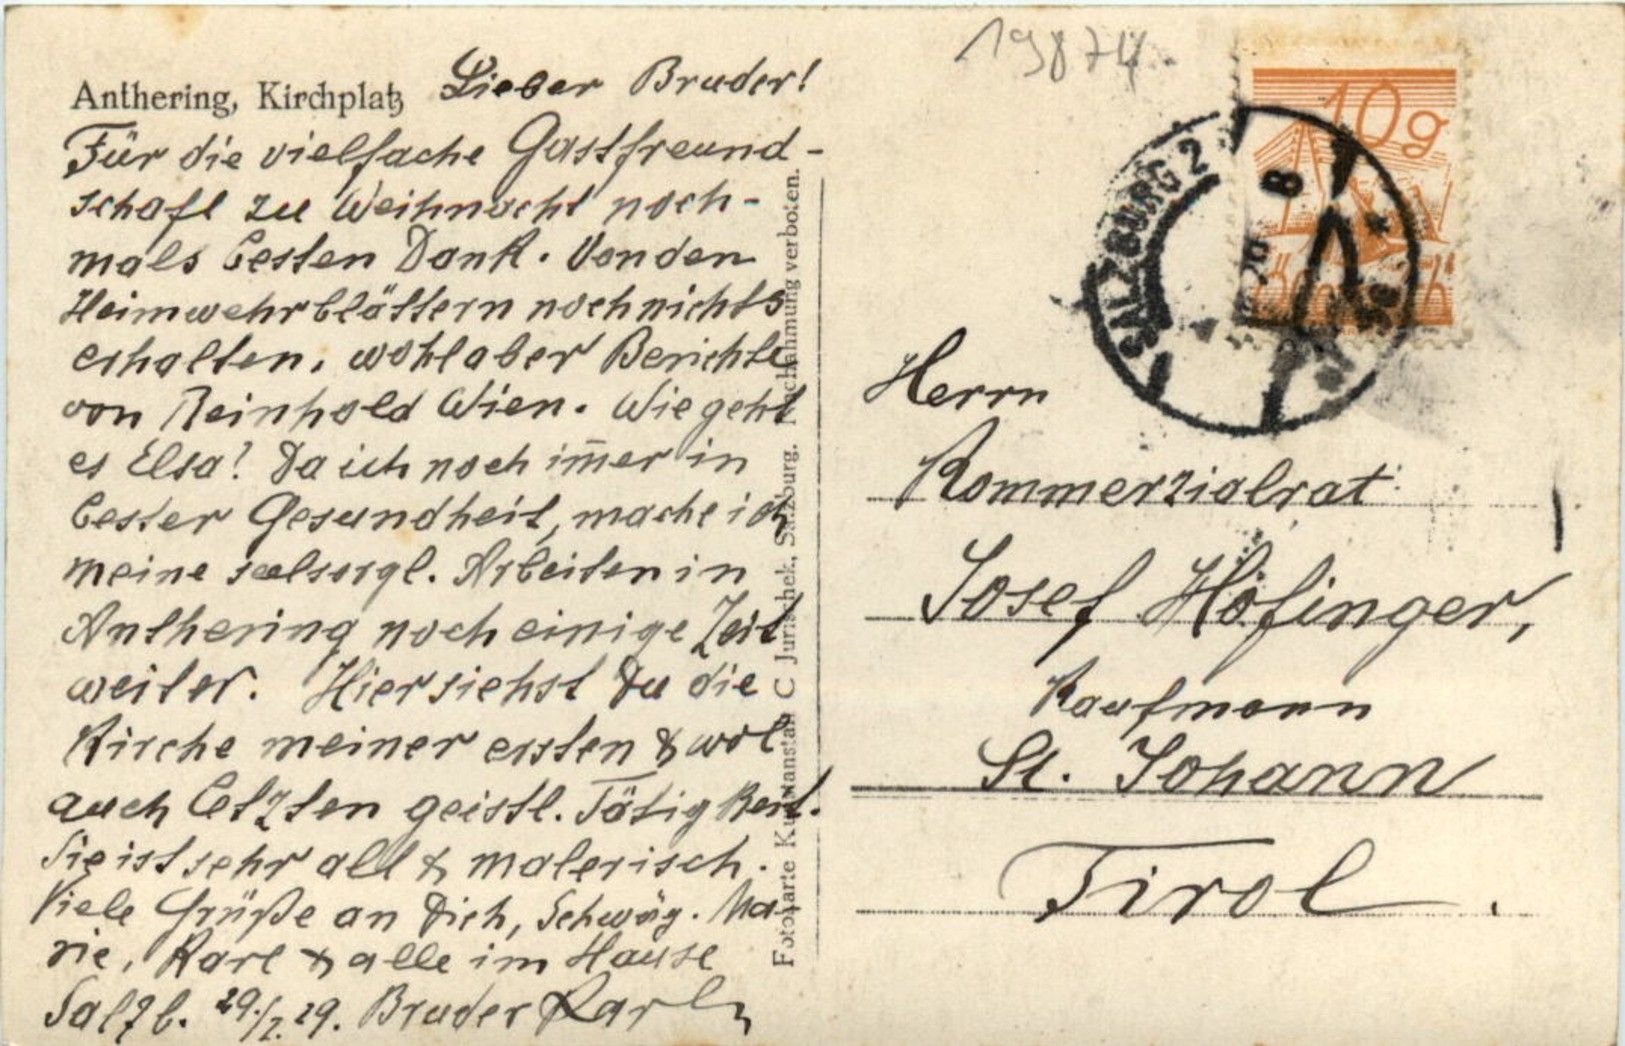 Anthering, Kirchplatz
Lieber Bruder!
Für die vielfache Gastfreund-
schaft zu Weihnacht noch-
mals besten Dank. Von den
Heimwehrblättern noch nichts
erhalten, wohl aber Berichte
von Reinhold Wien. Wie geht
es Elsa? Da ich noch im̄er in
bester Gesundheit, mache ich
meine seelsorgl. Arbeiten in
Anthering noch einige Zeit
weiter. Hier siehst Du die
Kirche meiner ersten & wol
auch letzten geistl. Tätigkeit.
Sie ist sehr alt & malerisch.
Viele Grüße an Dich, Schwäg. Ma-
rie, Karl & alle im Hause
Salzb. 29./1.29. Bruder Karl
Fotokarte Kunstanstalt C Jurischek, Salzburg. Nachahmung verboten.
19874
10g
SALZBURG 2
8
Herrn
Kommerzialrat
Josef Höfinger,
Kaufmann
St. Johann
Tirol.